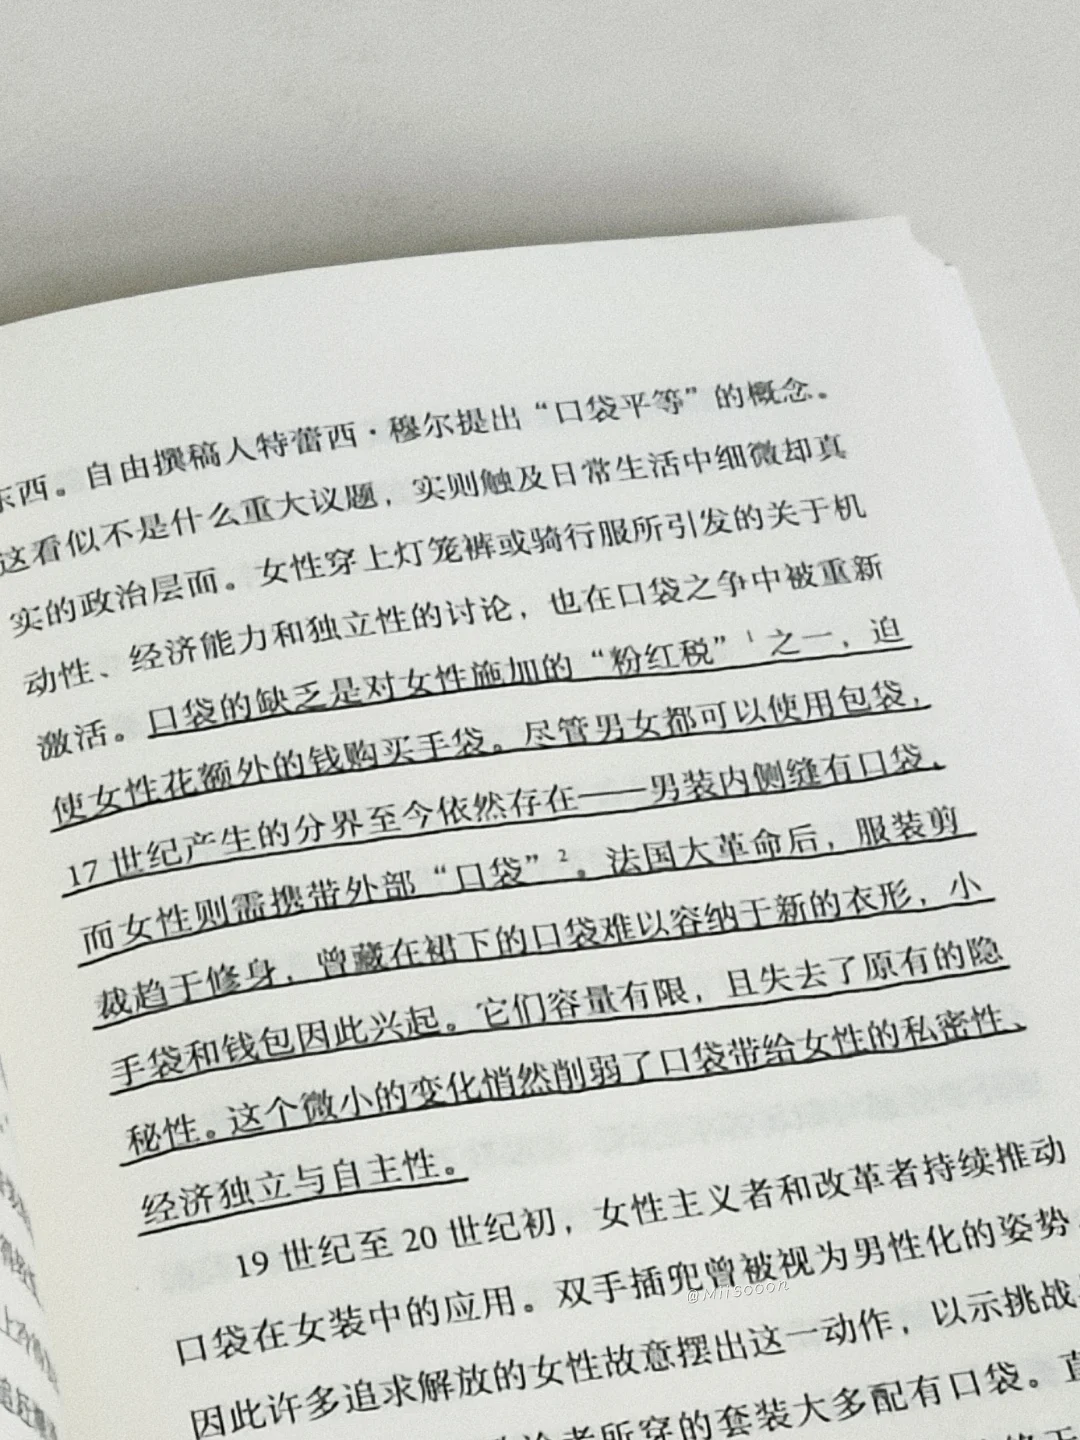 东西。自由撰稿人特蕾西·穆尔提出“口袋平等”的概念。
这看似不是什么重大议题，实则触及日常生活中细微却真
实的政治层面。女性穿上灯笼裤或骑行服所引发的关于机
动性、经济能力和独立性的讨论，也在口袋之争中被重新
激活。口袋的缺乏是对女性施加的“粉红税”1之一，迫
使女性花额外的钱购买手袋。尽管男女都可以使用包袋，
17世纪产生的分界至今依然存在——男装内侧缝有口袋，
而女性则需携带外部“口袋”2。法国大革命后，服装剪
裁趋于修身，曾藏在裙下的口袋难以容纳于新的衣形，小
手袋和钱包因此兴起。它们容量有限，且失去了原有的隐
秘性。这个微小的变化悄然削弱了口袋带给女性的私密性、
经济独立与自主性。
19世纪至20世纪初，女性主义者和改革者持续推动
口袋在女装中的应用。双手插兜曾被视为男性化的姿势
@Mitsooon
因此许多追求解放的女性故意摆出这一动作，以示挑战
者所穿的套装大多配有口袋。直